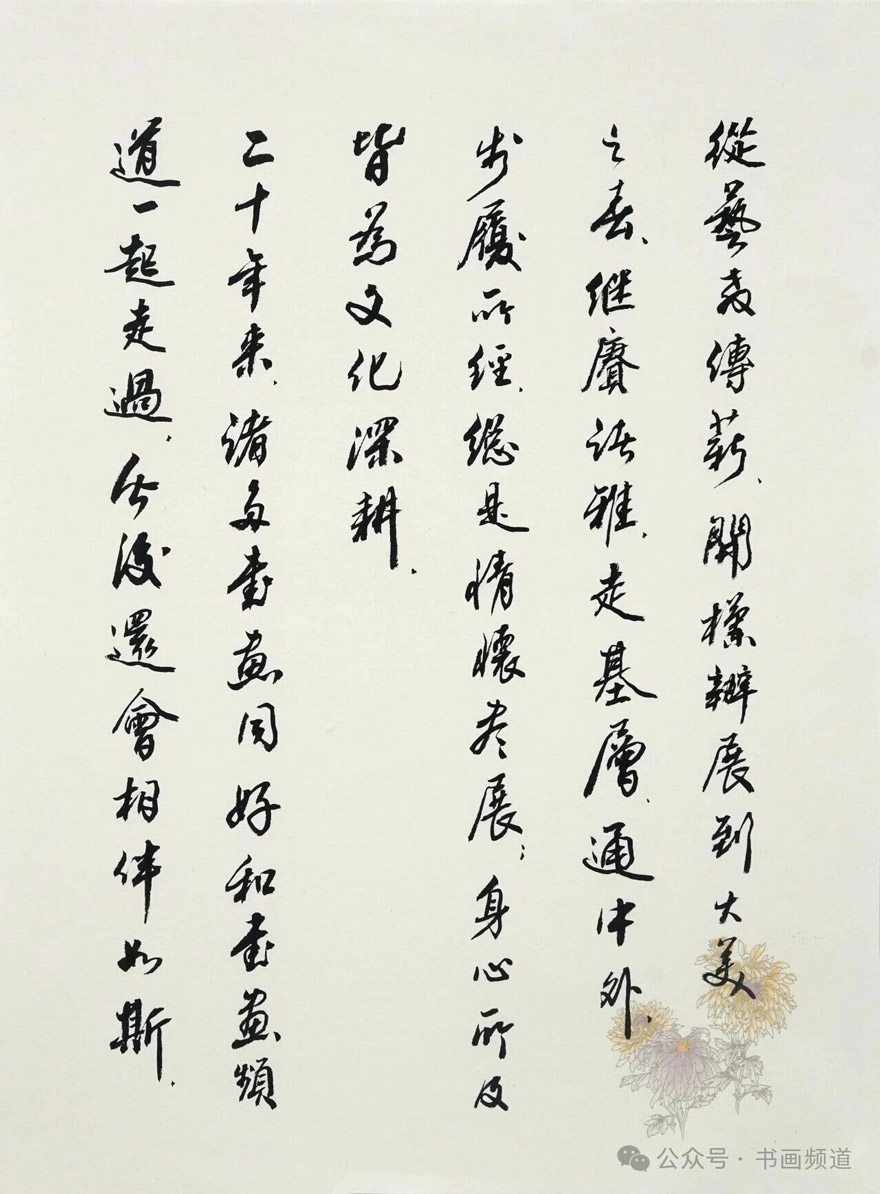 從藝友傳薪、開櫃辦展到大美
之春、继赓讲雅、走基層、通中外、
步履所經、總是情懷盡展；身心所及
皆為文化深耕．
二十年来、諸多書畫同好和書畫頻
道一起走過、今後還會相伴如斯．
公众号·书画频道